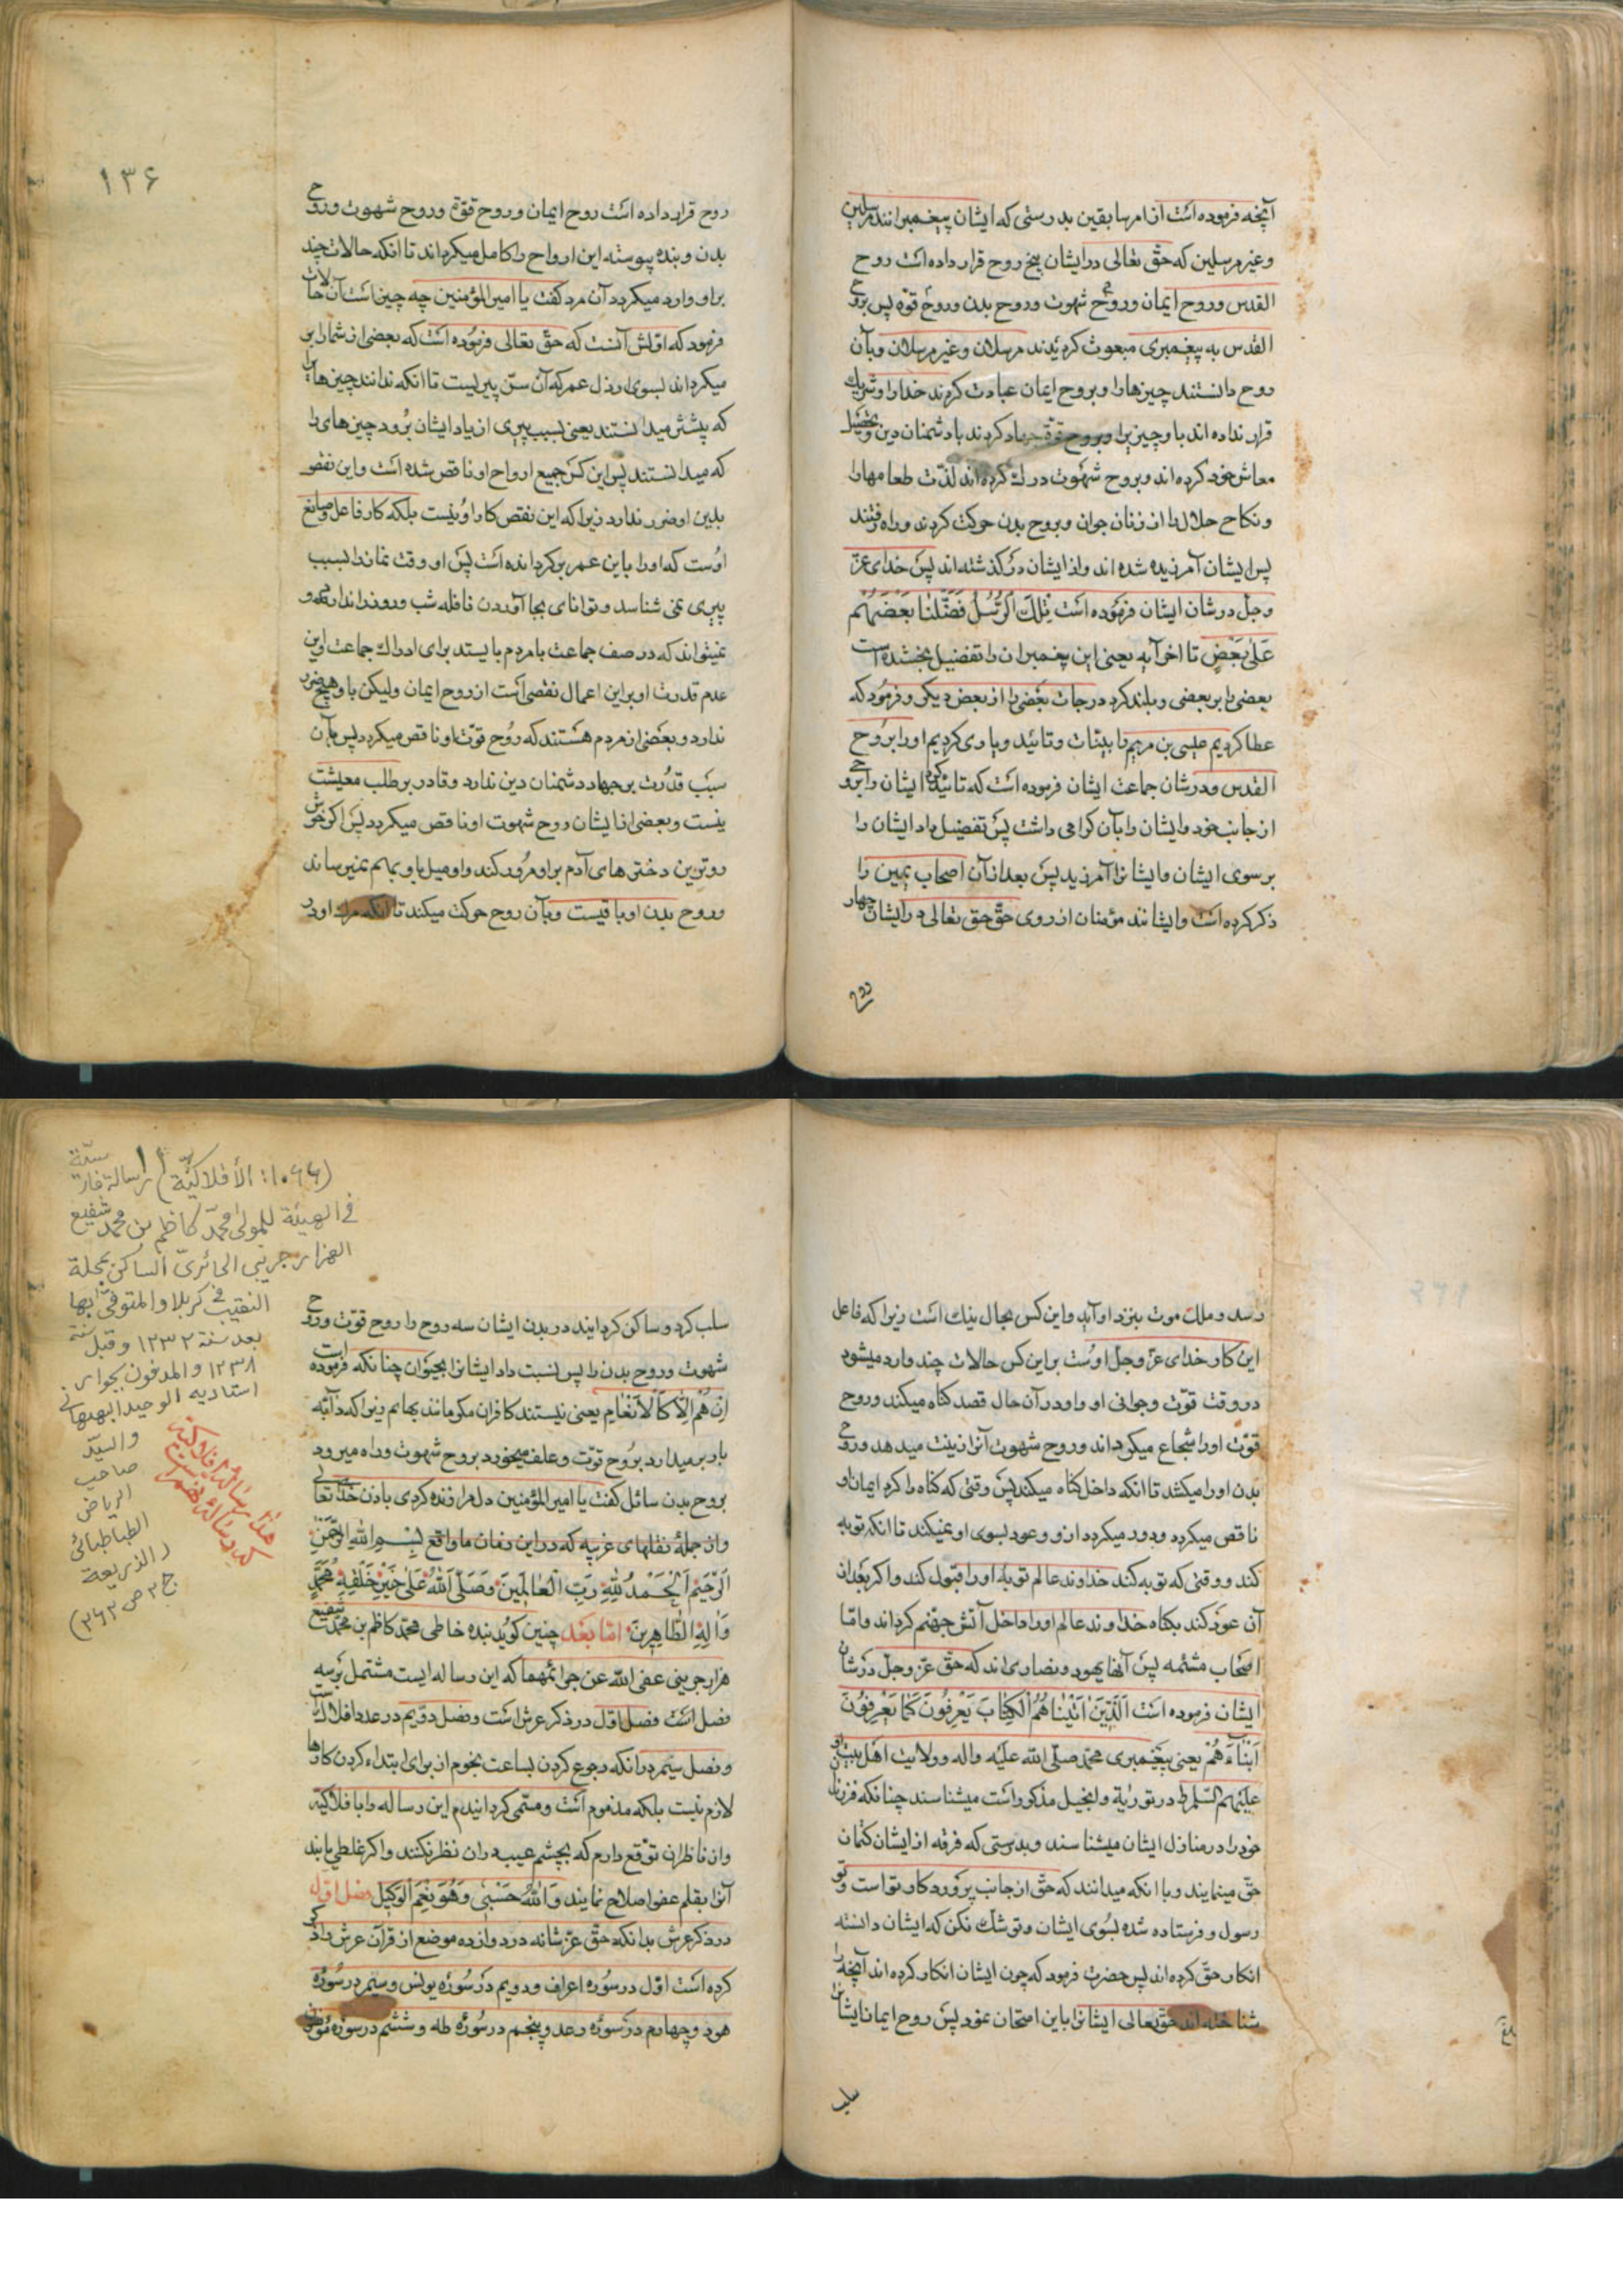 آنچه فرموده است از امر سابقین بدرستی که ایشان پیغمبرانند مرسلین
وغیر مرسلین که حقّ تعالی در ایشان پنج روح قرار داده است روح
القدس وروح ایمان وروح شهوت وروح بدن وروح قوّة پس بروح
القدس به پیغمبری مبعوث کردیدند مرسلان وغیر مرسلان وبآن
روح دانستند چیزها را وبروح ایمان عبادت کردند خدا را وشریک
قرار نداده اند باو چیزیرا وبروح قوّة جهاد کردند با دشمنان دین وتحصیل
معاش خود کرده اند وبروح شهوت درک کرده اند لذّت طعامها را
ونکاح حلال را از زنان جوان وبروح بدن حرکت کردند وراه رفتند
پس ایشان آمرزیده شده اند واز ایشان درگذشته اند پس خدای عزّ
وجلّ در شان ایشان فرموده است تِلْكَ الرُّسُلُ فَضَّلْنٰا بَعْضَهُمْ
عَلٰی بَعْضٍ تا اخر آیه یعنی این پیغمبران را تفضیل بخشیده است
بعضی را بر بعضی وبلند کرد درجات بعضی را از بعض دیکر وفرمود که
عطا کردیم عیسی بن مریم را بیّنات وتائید ویاری کردیم او را بروح
القدس ودرشان جماعت ایشان فرموده است که تائید کرد ایشان را بروح
از جانب خود وایشان را بآن کرامی داشت پس تفضیل داد ایشان را
بر سوی ایشان وایشانرا آمرزید پس بعد از آن اصحاب یمین را
ذکر کرده است وایشانند مؤمنان از روی حقّ حق تعالی در ایشان چهار
روح
۱۳۶
روح قرار داده است روح ایمان وروح قوّة وروح شهوت وروح
بدن وبنده پیوسته این ارواح را کامل میکرداند تا انکه حالات چند
براو وارد میکردد آن مرد کفت یا امیر المؤمنین چه چیز است آن حالات
فرمود که اوّلش آنست که حقّ تعالی فرموده است که بعضی از شما را بر
میکرداند بسوی ارذل عمر که آن سنّ پیریست تا انکه ندانند چیزها را
که پیشتر میدانستند یعنی بسبب پیری از یاد ایشان برود چیزهای را
که میدانستند پس این کس جمیع ارواح او ناقص شده است واین نقص
بدین او ضرر ندارد زیرا که این نقص کار او نیست بلکه کار فاعل وصانع
اوست که او را باین عمر برکردانده است پس او وقت نماز را بسبب
پیری نمی شناسد وتوانای بجا آوردن نافله شب وروز را ندارد و
نمیتواند که در صف جماعت با مردم بایستد برای ادراک جماعت واین
عدم قدرت او براین اعمال نقصی است از روح ایمان ولیکن باو هیچ ضرر
ندارد وبعضی از مردم هستند که روح قوّت او ناقص میکردد پس بآن
سبب قدرت بر جهاد دشمنان دین ندارد وقادر بر طلب معیشت
نیست وبعضی از ایشان روح شهوت او ناقص میکردد پس اکر خوش
روترین دخترهای آدم براو مرور کند واو میل باو بهم نمیرساند
وروح بدن او باقیست وبآن روح حرکت میکند تا انکه مرک او در
رسد وملک موت بنزد او آید واین کس بحال نیک است زیرا که فاعل
این کار خدای عزّ وجلّ اوست براین کس حالات چند وارد میشود
در وقت قوّت وجوانی او وا در آن حال قصد کناه میکند وروح
قوّت او را شجاع میکرداند وروح شهوت آنرا زینت میدهد وروح
بدن او را میکشد تا انکه داخل کناه میکند پس وقتی که کناه را کرد ایمان او
ناقص میکردد ودور میکردد ازو وعود بسوی او نمیکند تا انکه توبه
کند ووقتی که توبه کند خداوند عالم توبهٔ او را قبول کند واکر بعد از
آن عود کند بکناه خداوند عالم او را داخل آتش جهنّم کرداند وامّا
اصحاب مشئمه پس آنها یهود ونصاری اند که حقّ عزّ وجلّ در شان
ایشان فرموده است اَلَّذِینَ اٰتَیْنٰاهُمُ الْکِتٰابَ یَعْرِفُونَ کَمٰا یَعْرِفُونَ
اَبْنٰاءَهُمْ یعنی پیغمبری محمّد صلّی الله علیه واله وولایت اهل بیت او
علیهم السّلام در توریة وانجیل مذکور است میشناسند چنانکه فرزندان
خود را در منازل ایشان میشناسند وبدرستی که فرقه از ایشان کتمان
حقّ مینمایند وبا انکه میدانند که حقّ از جانب پروردکار تو است وتو
رسول وفرستاده شده بسوی ایشان وتو شک نکن که ایشان دانسته
انکار حقّ کرده اند پس حضرت فرمود که چون ایشان انکار کرده اند آنچه را
شناخته اند حقّ تعالی ایشانرا باین امتحان نمود پس روح ایمان ایشانرا
سلب
سلب کرد وساکن کردانید در بدن ایشان سه روح را روح قوّت وروح
شهوت وروح بدن را پس نسبت داد ایشانرا بحیوان چنانکه فرموده است
اِنْ هُمْ اِلّٰا کَالْاَنْعٰامِ یعنی نیستند کافران مکر مانند بهائم زیرا که دابّه
بار برمیدارد بروح قوّت وعلف میخورد بروح شهوت وراه میرود
بروح بدن سائل کفت یا امیر المؤمنین دلم را زنده کردی باذن خدا تعالی
واز جملهٔ نقلهای غریبه که در این زمان ما واقع بِسْمِ اللهِ الرَّحْمٰنِ
الرَّحِیْمِ اَلْحَمْدُ لِلّٰهِ رَبِّ الْعٰالَمِینَ وَصَلَّی اللهُ عَلٰی خَیْرِ خَلْقِهِ مُحَمَّدٍ
وَاٰلِهِ الطَّاهِرِینَ امّا بعد چنین کوید بنده خاطی محمّد کاظم بن محمّد شفیع
هزار جریبی عفی الله عن جرائمهما که این رساله ایست مشتمل برسه
فصل است فصل اوّل در ذکر عرش است وفصل دویم در عدد افلاک است
وفصل سیم در انکه رجوع کردن بساعت نجوم از برای ابتداء کردن کارها
لازم نیست بلکه مذموم است ومسمّی کردانیدم این رساله را بافلاکیّه
واز ناظران توقّع دارم که بچشم عیب در ان نظر نکنند واکر غلطی یابند
آنرا بقلم عفو اصلاح نمایند وَاللهُ حَسْبِی وَهُوَ نِعْمَ الْوَکِیْلُ فصل اوّل
در ذکر عرش بدانکه حقّ عزّ شانه در دوازده موضع از قرآن عرش را ذکر
کرده است اوّل در سوره اعراف ودویم در سورهٔ یونس وسیم در سورهٔ
هود وچهارم در سورهٔ رعد وپنجم در سورهٔ طه وششم در سورهٔ مؤمنون
(۱۰۶۶: الأفلاکیّة) رسالة فارسیّة
في الهیئة للمولی محمّد کاظم بن محمّد شفیع
الهزار جریبي الحائريّ الساکن بمحلة
النقیب في کربلا والمتوفّی بها
بعد سنة ۱۲۳۲ وقبل سنة
۱۲۳۸ والمدفون بجوار
استادیه الوحید البهبهاني
والسیّد
صاحب
الریاض
الطباطبائی
(الذریعة
ج ۲ ص ۲۶۲)
هذا رسالهٔ افلاکیّه